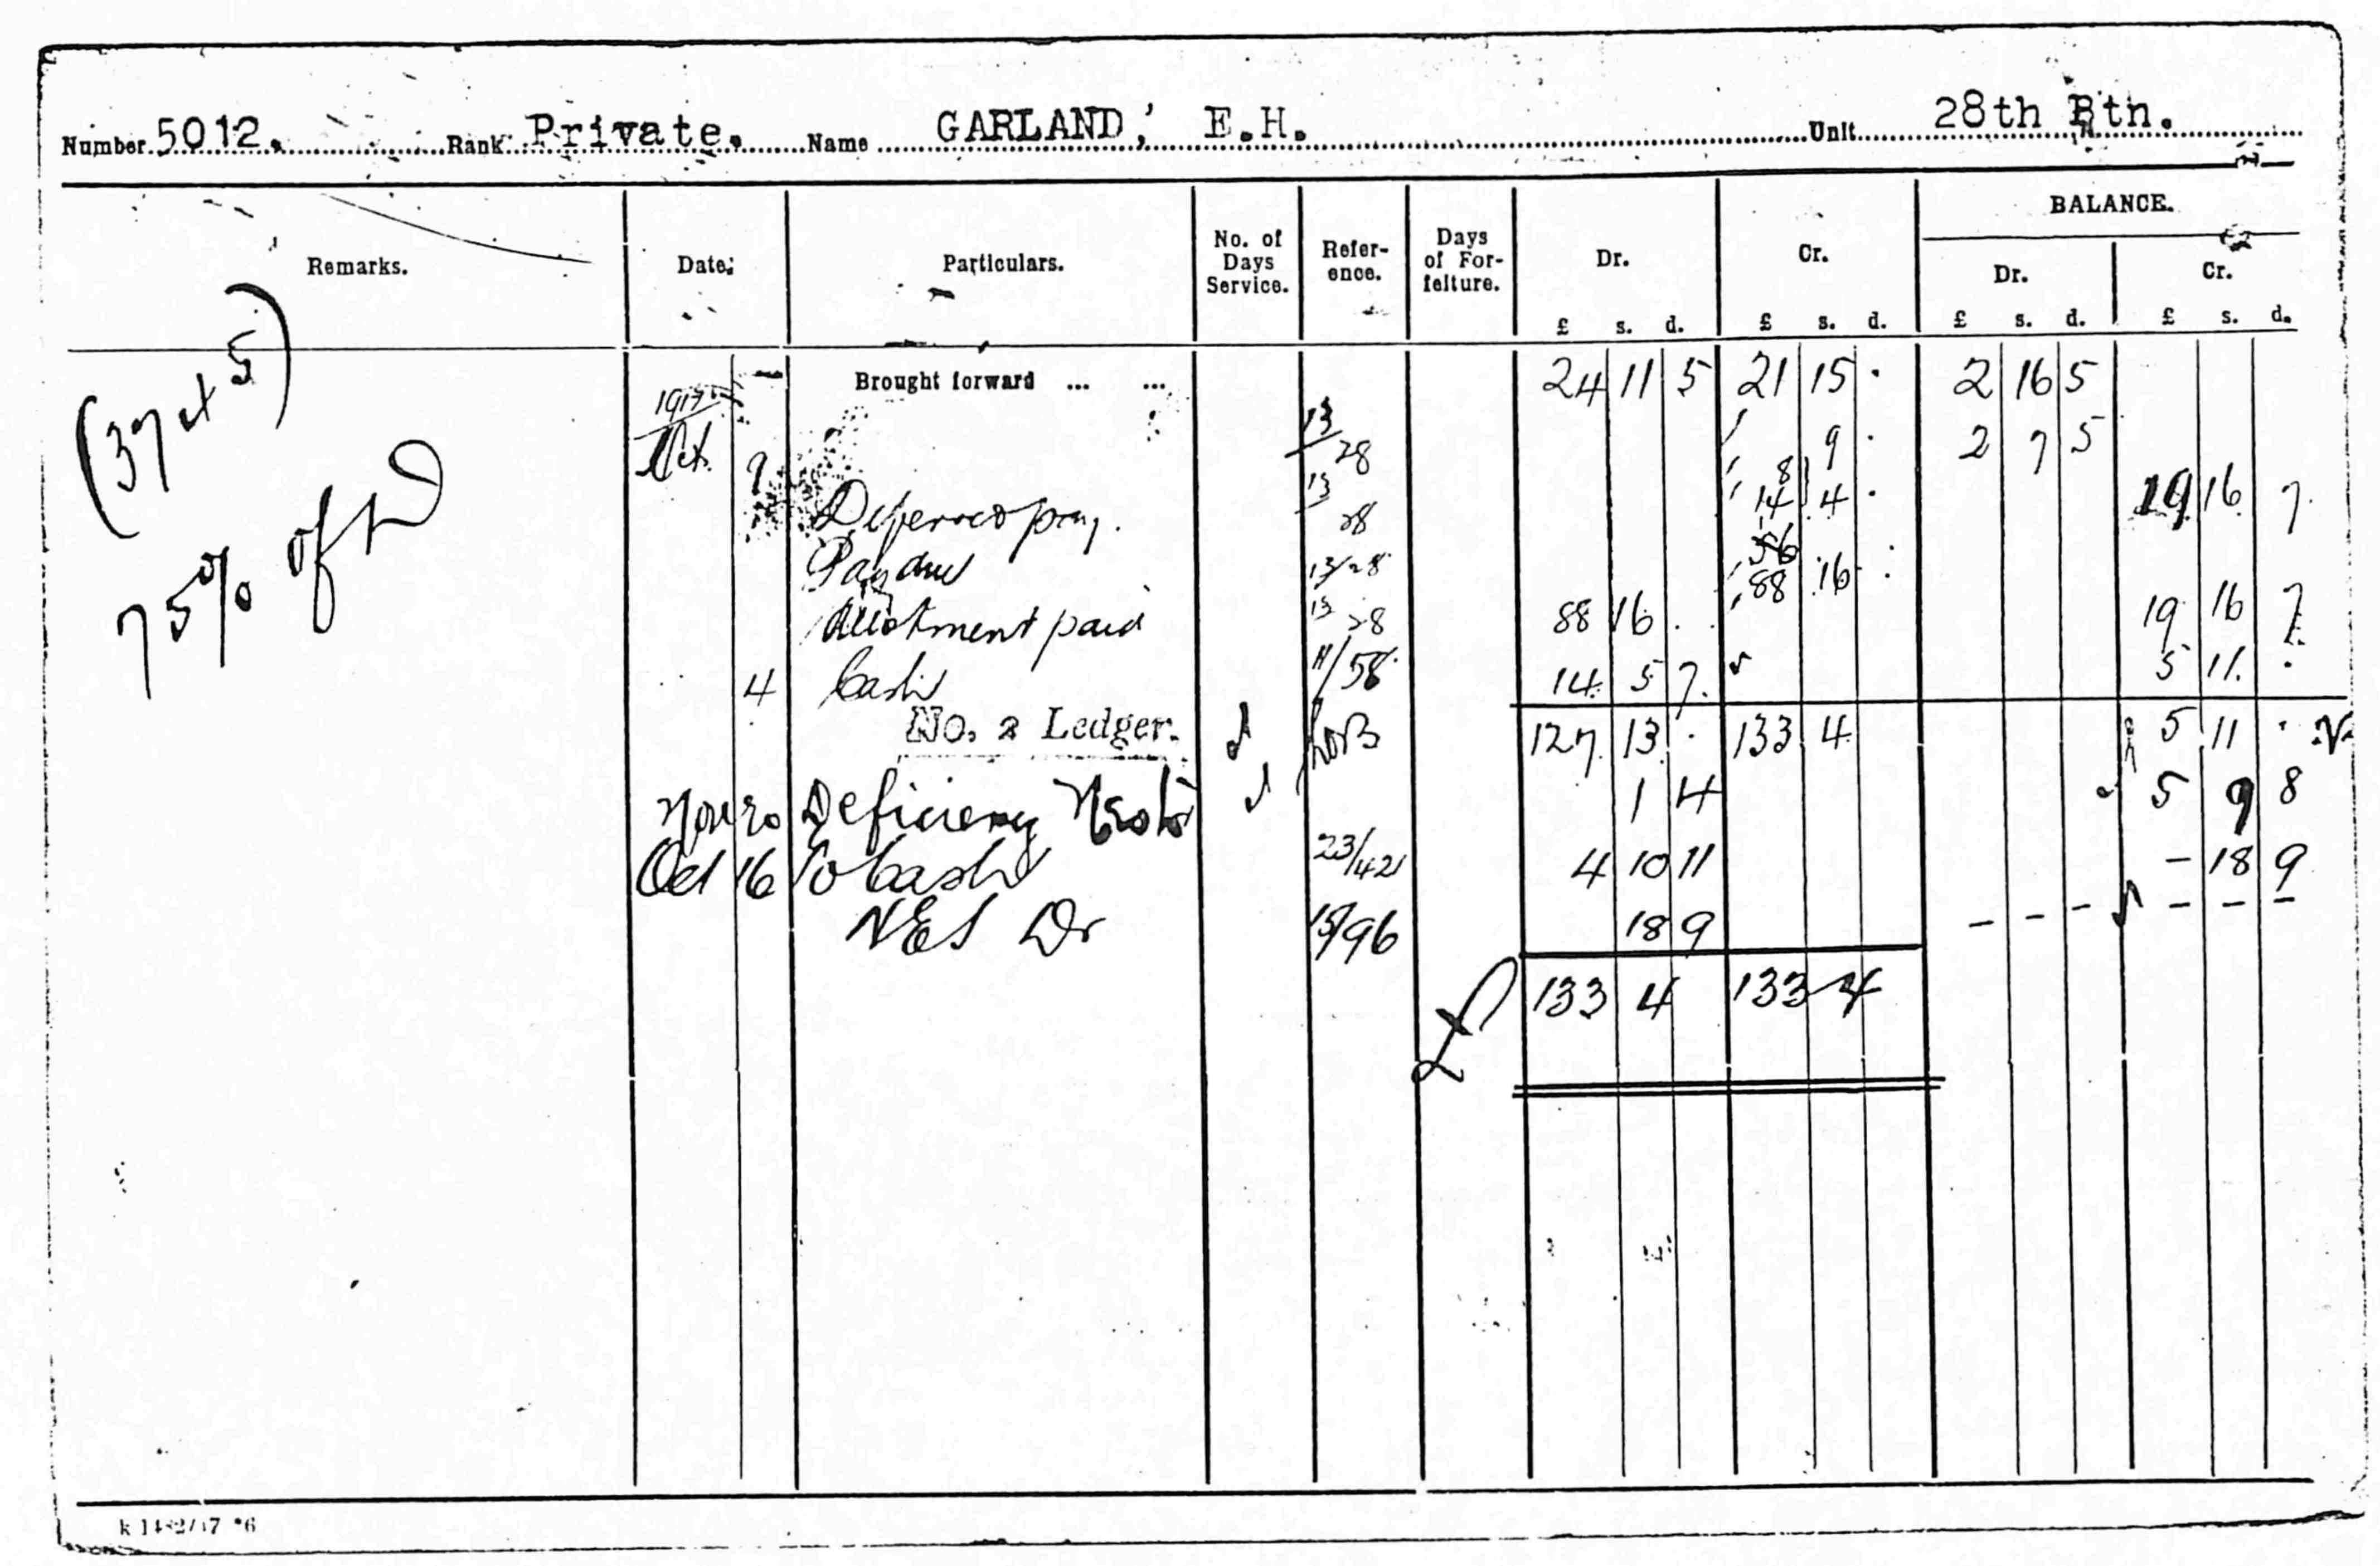 Number 5012. Rank Private. Name GARLAND, E.H. Unit 28th Btn.
Remarks. Date. Particulars. No. of Days Service. Reference. Days of Forfeiture. Dr. Cr. BALANCE. Dr. Cr.
£ s. d. £ s. d. £ s. d. £ s. d.
(37 at 5)
75% of
Brought forward ... ... 24 11 5 21 15 . 2 16 5
1917
Oct. 9 13/28 9 . 2 7 5
Deferred pay. 13/28 8 14 4 . 19 16 7
Pay due 13/28 56 88 16 .
Allotment paid 13/28 88 16 . 19 16 7
4 Cash 11/58 14 5 7 5 11 .
No. 2 Ledger. 127 13 . 133 4 5 11 .
Nov 20 Deficiency 1 4 5 9 8
Oct 16 To Cash 23/42 4 10 11 - 18 9
NES Dr 15/96 18 9 - - - - - -
£ 133 4 133 4